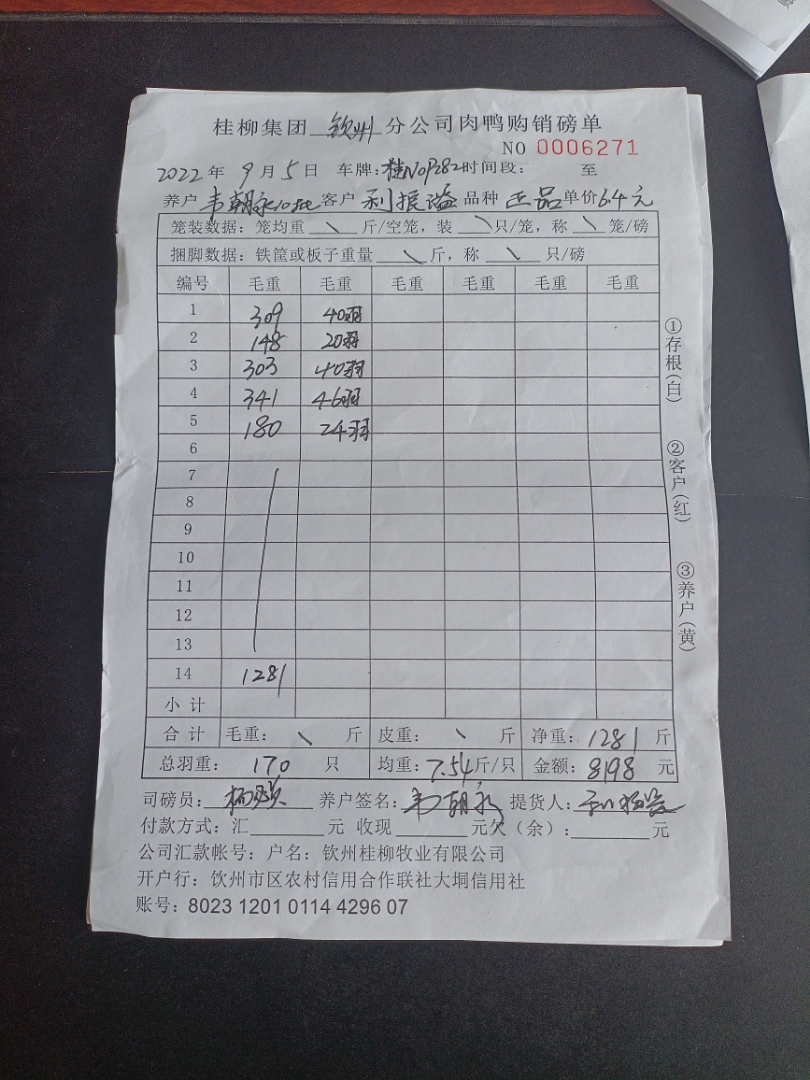 桂柳集团 钦州 分公司肉鸭购销磅单
NO 0006271
2022 年 9 月 5 日 车牌: 桂N0P282 时间段: 至
养户 韦朝永10批 客户 利振溢 品种 正品 单价 6.4 元
笼装数据: 笼均重 \ 斤/空笼, 装 \ 只/笼, 称 \ 笼/磅
捆脚数据: 铁筐或板子重量 \ 斤, 称 \ 只/磅
编号 毛重 毛重 毛重 毛重 毛重 毛重
1 309 40羽
2 148 20羽
3 303 40羽
4 341 46羽
5 180 24羽
6
7
8
9
10
11
12
13
14 1281
小 计
合 计 毛重: \ 斤 皮重: \ 斤 净重: 1281 斤
总羽重: 170 只 均重: 7.54 斤/只 金额: 8198 元
司磅员: 养户签名: 韦朝永 提货人:
付款方式: 汇 元 收现 元 欠(余): 元
公司汇款帐号: 户名: 钦州桂柳牧业有限公司
开户行: 钦州市区农村信用合作联社大垌信用社
账号: 8023 1201 0114 4296 07
①存根(白)
②客户(红)
③养户(黄)